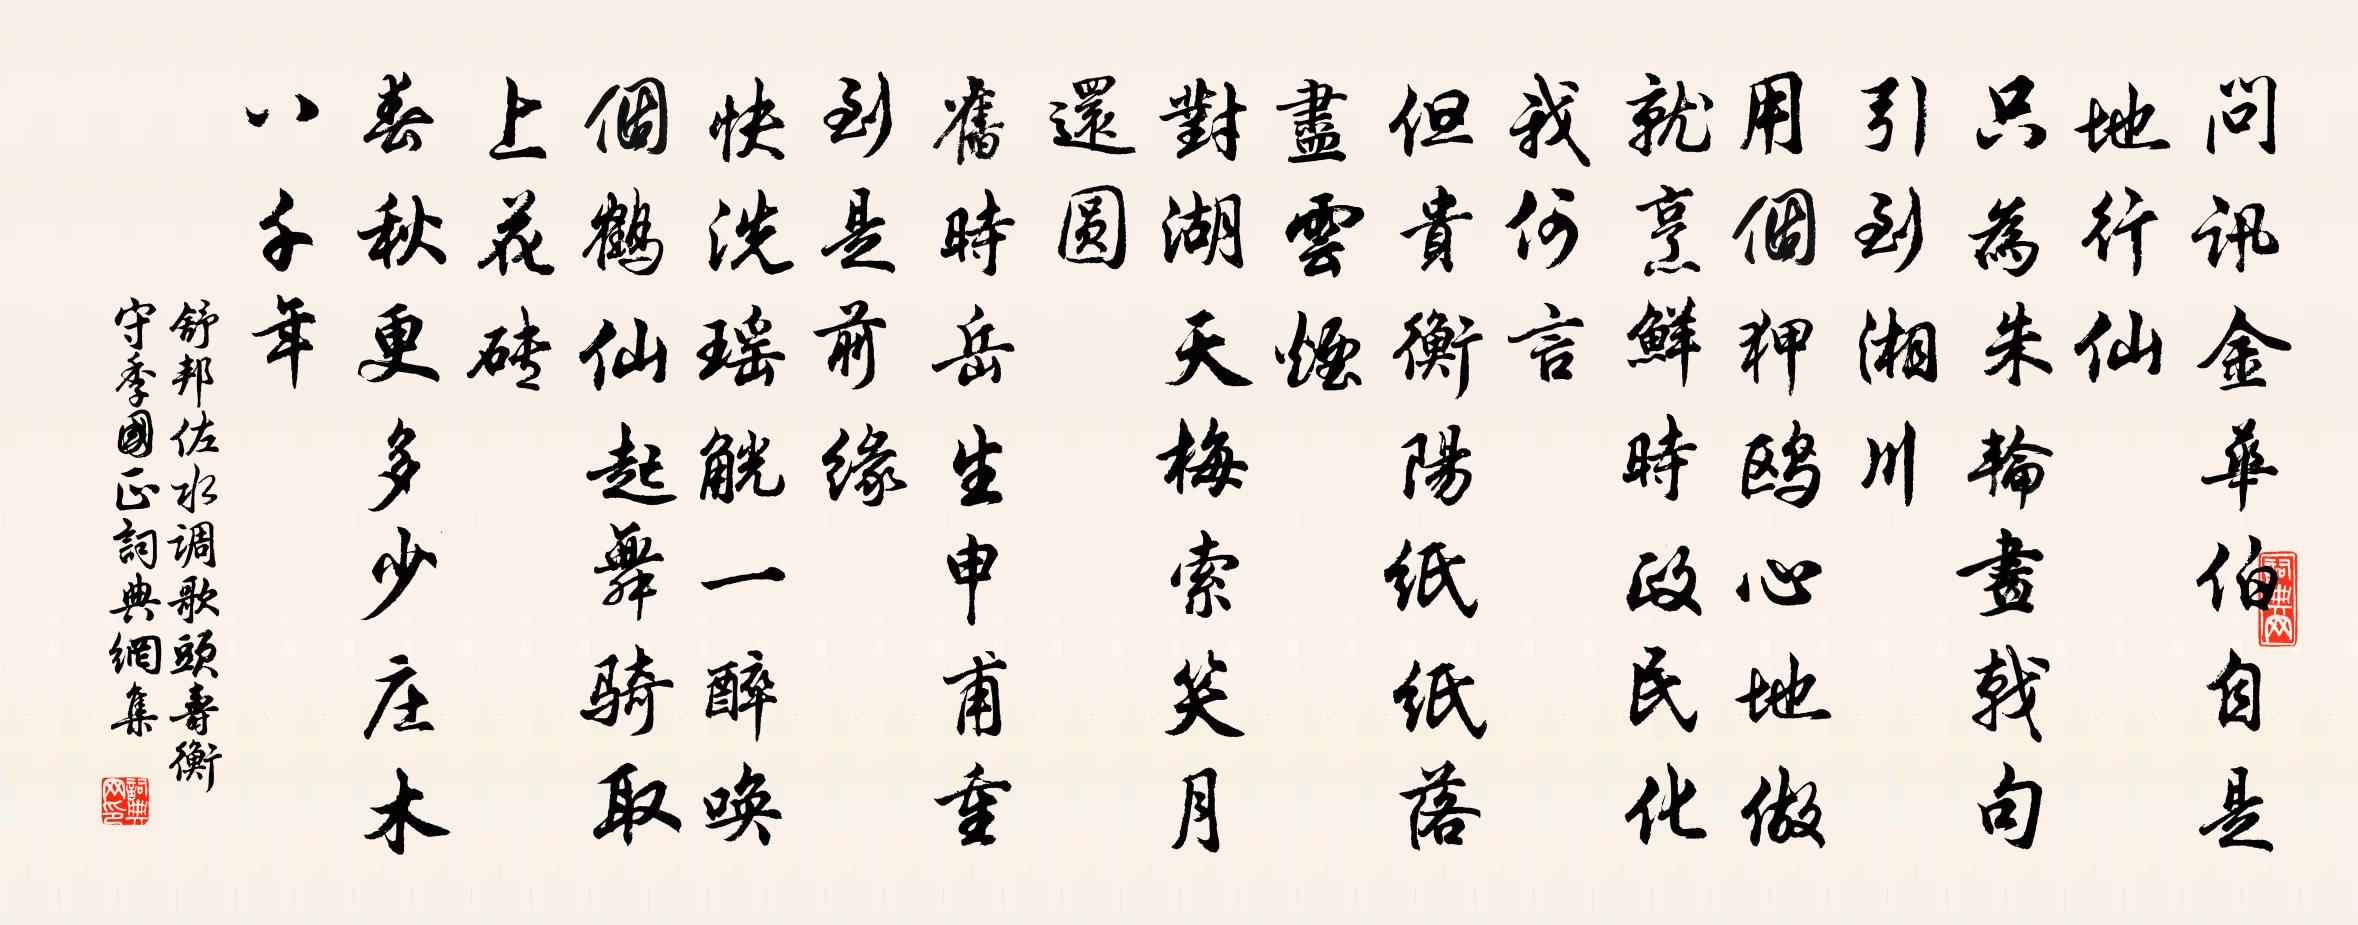 問訊金華伯自是
地行仙
只為朱輪畫戟句
引到湘川
用個狎鷗心地做
就烹鮮時政民化
我何言
但貴衡陽紙紙落
盡雲煙
對湖天梅索笑月
還圓
舊時岳生申甫重
到是前緣
快洗瑶觥一醉唤
個鶴仙起舞骑取
上花磚
春秋更多少庄木
八千年
舒邦佐水调歌頭壽衡
守季國正詞典網集
詞典网
詞典网印